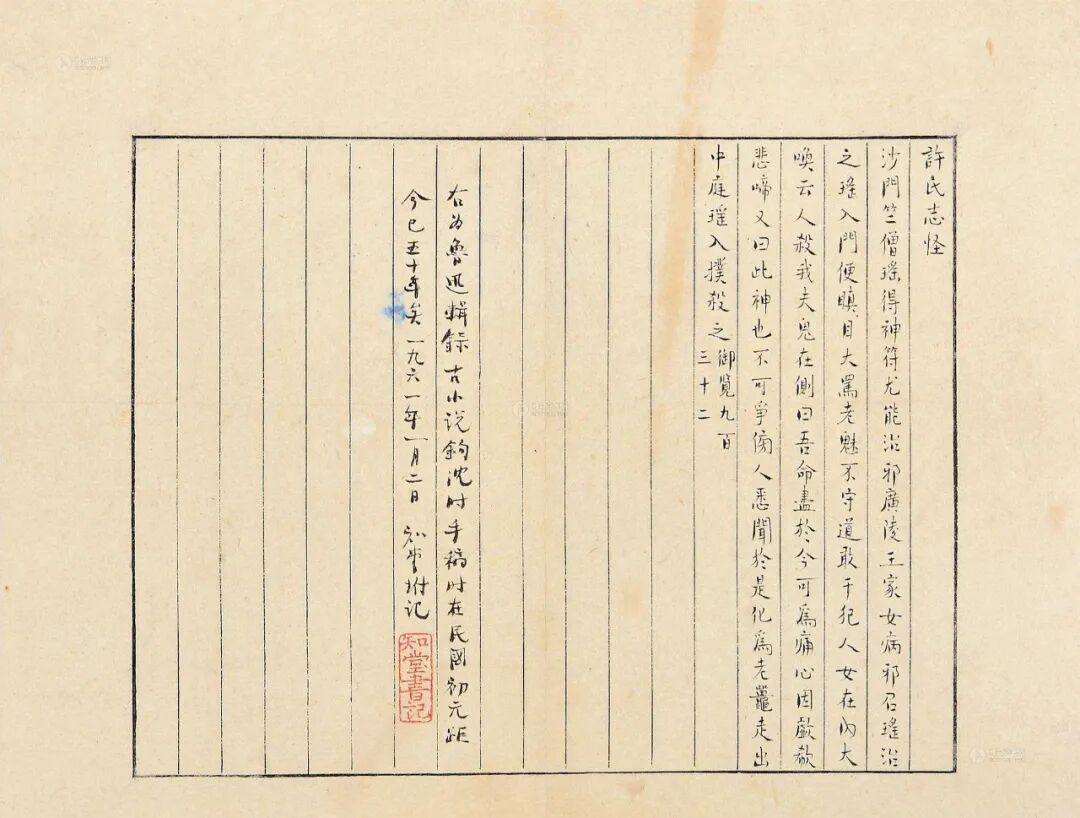 許氏志怪
沙門竺僧瑤得神符尤能治邪廣陵王家女病邪召瑤治
之瑤入門便瞋目大罵老魅不守道敢干犯人女在內大
喚云人殺我夫鬼在側曰吾命盡於今可為痛心因歔欷
悲啼又曰此神也不可爭傍人悉聞於是化為老鼉走出
中庭瑤入撲殺之御覽九百
三十二
右為魯迅輯錄古小说鉤沈时手稿时在民國初元距
今已五十年矣一九六一年一月二日 知堂坿记
知堂書記